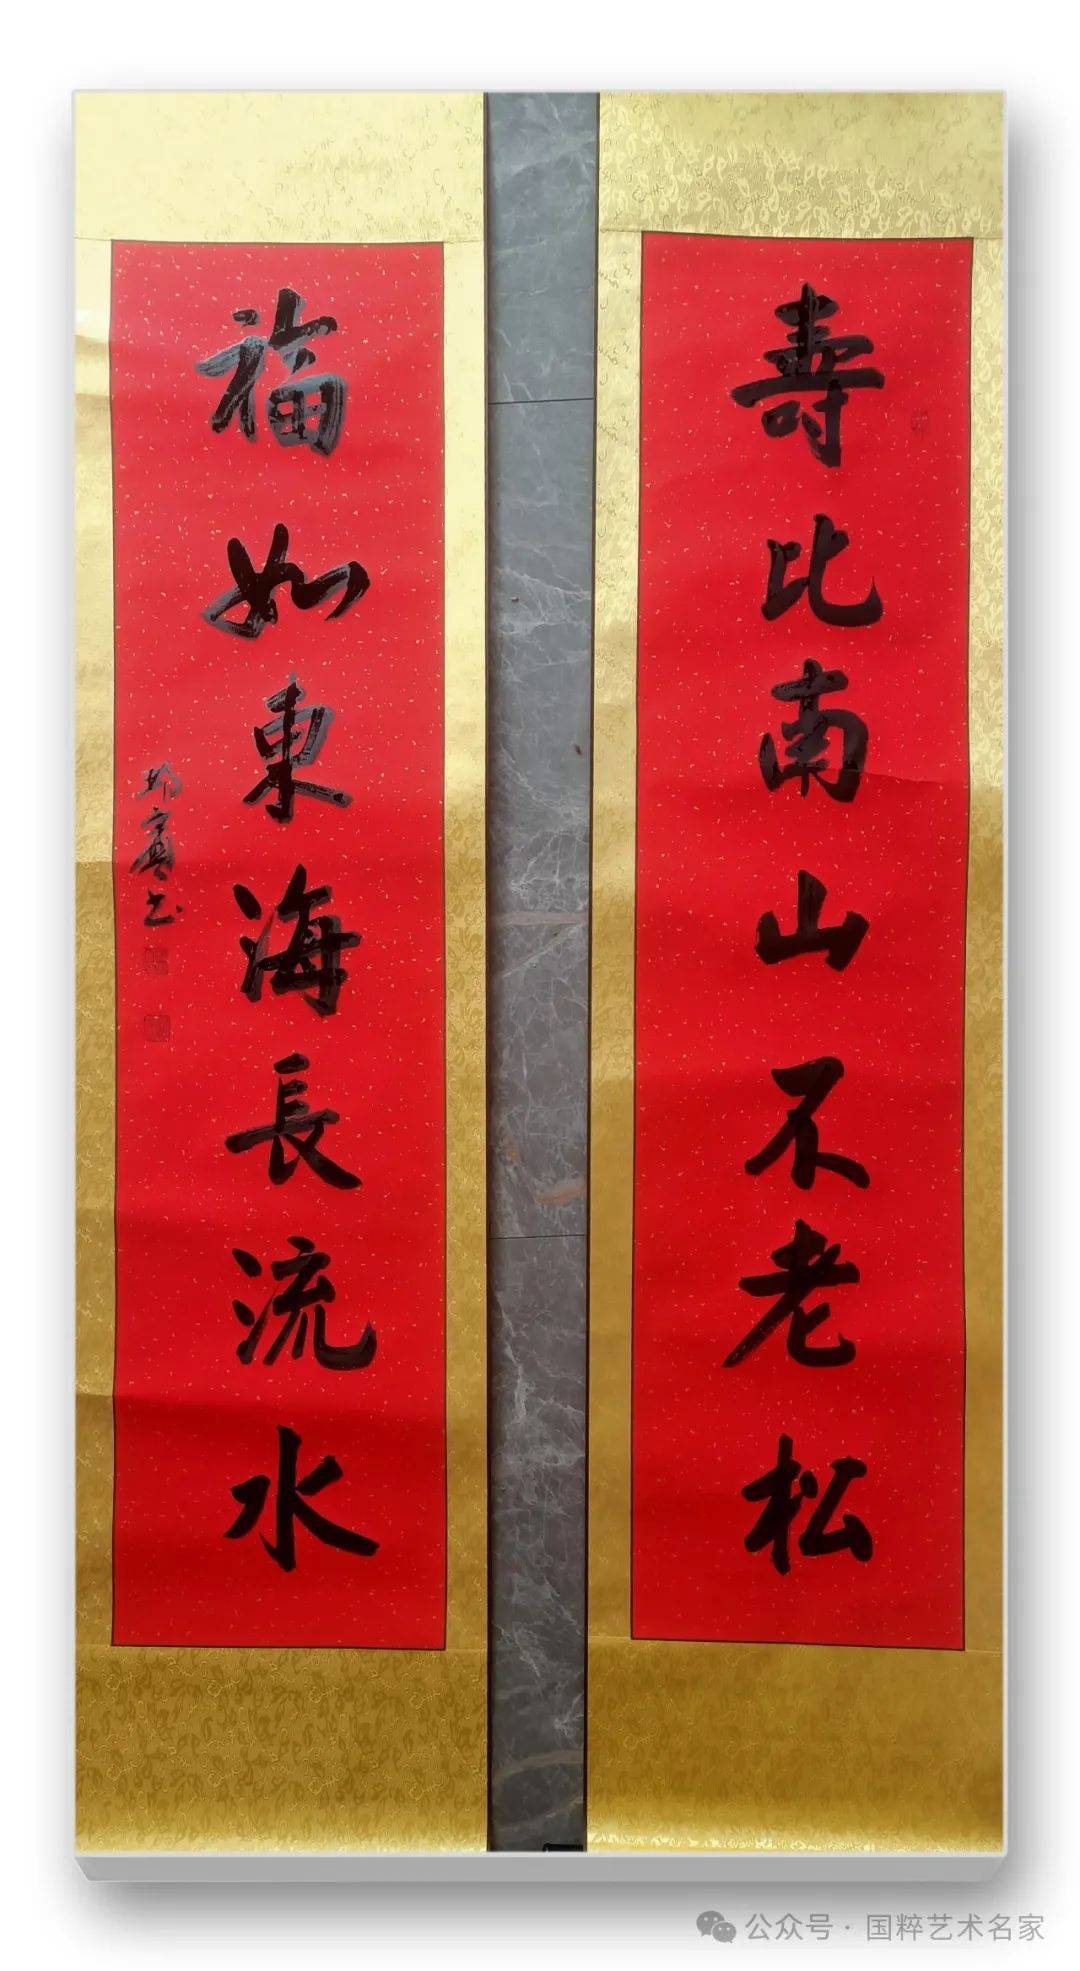 壽比南山不老松
福如東海長流水
公众号 · 国粹艺术名家